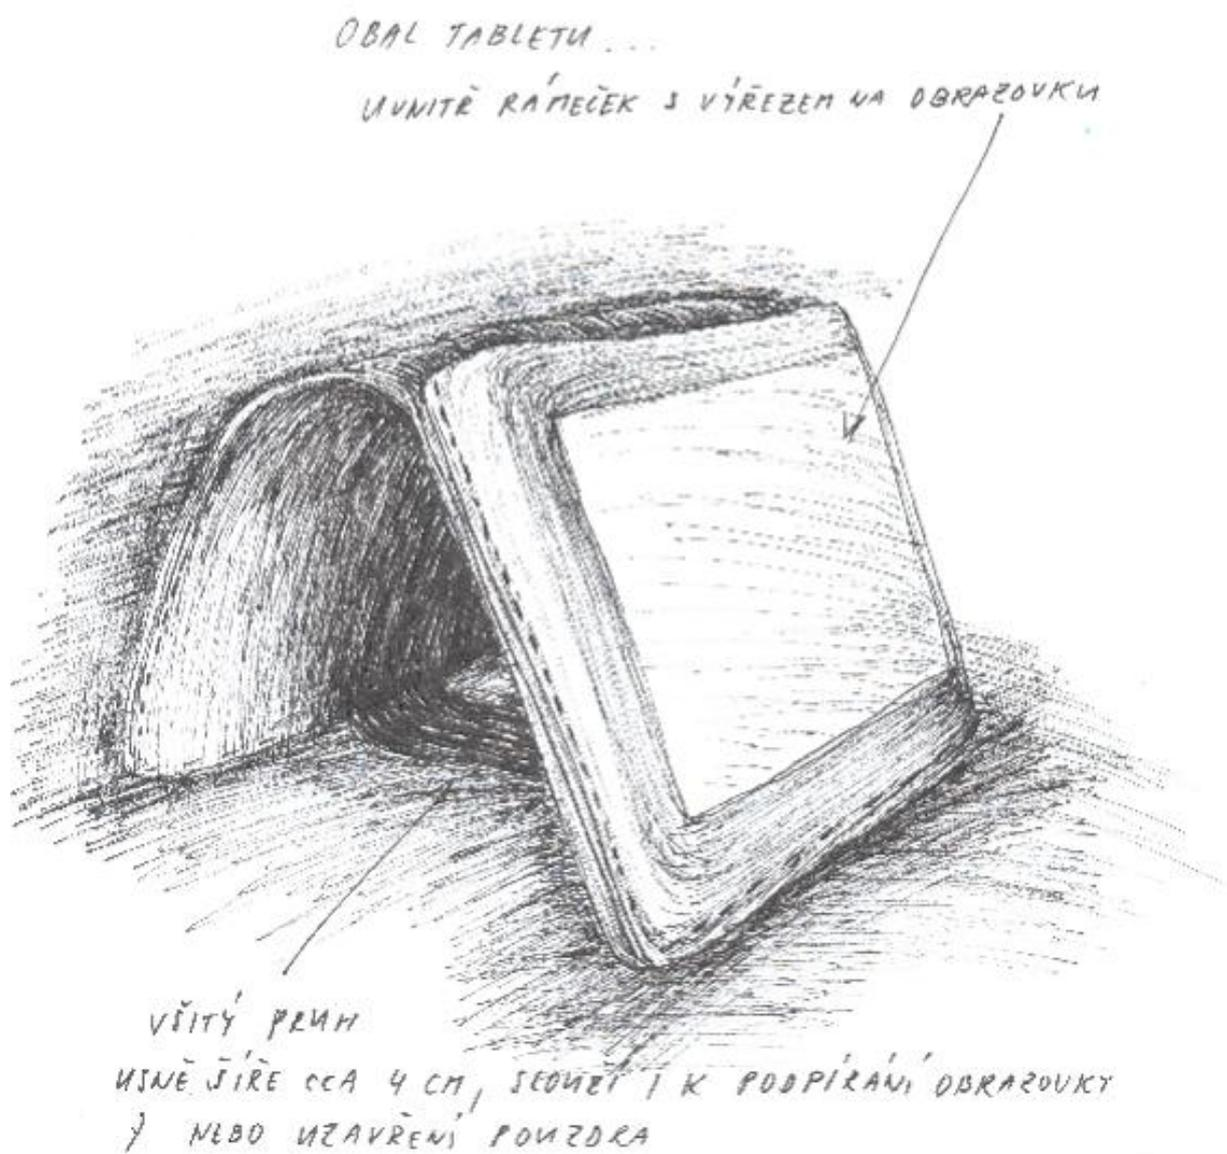 OBAL TABLETU...
UVNITŘ RÁMEČEK S VÝŘEZEM NA OBRAZOVKU
VŠITÝ PRUH
USNĚ ŠÍŘE CCA 4 CM, SLOUŽÍ I K PODPÍRÁNÍ OBRAZOVKY
NEBO UZAVŘENÍ POUZDRA